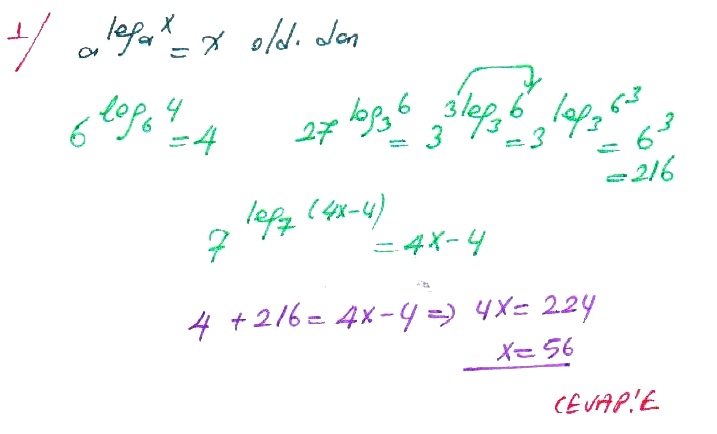 1/ a^log_a x = x old. dan
6^log_6 4 = 4 27^log_3 6 = 3^3log_3 6 = 3^log_3 6^3 = 6^3
= 216
7^log_7 (4x-4) = 4x-4
4 + 216 = 4x-4 => 4x = 224
x = 56
CEVAP: E